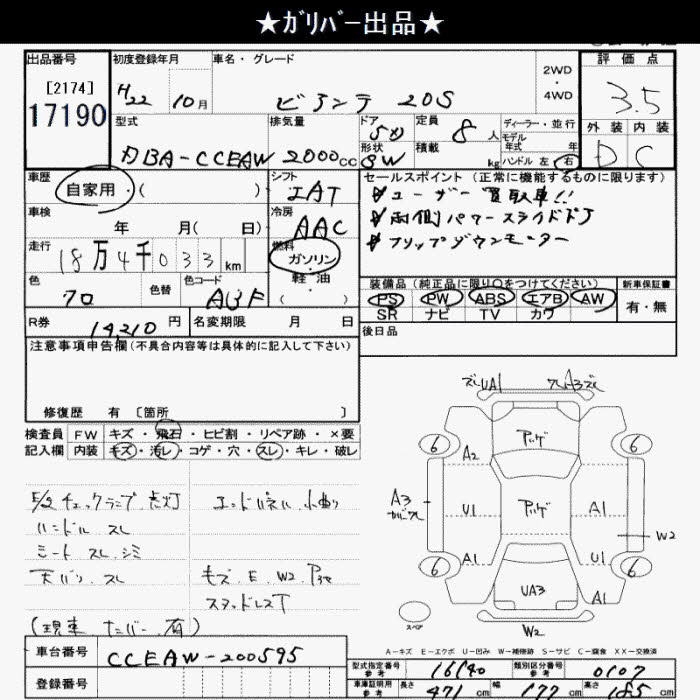 ★ガリバー出品★
出品番号
[2174]
17190
初度登録年月
H22 10月
車名・グレード
ビアンテ 20S
2WD
・
4WD
評価点
3.5
型式
DBA-CCEAW
排気量
2000cc
ドア
5D
形状
SW
定員
8人
積載
kg
ディーラー・並行
モデル年式 年
ハンドル 左・右
外装 内装
D C
車歴
自家用・( )
シフト
IAT
冷房
AAC
セールスポイント (正常に機能するものに限ります)
ユーザー買取車!!
両側パワースライドドア
フリップダウンモーター
車検
年 月( 日)
走行
18万4千033km
燃料
ガソリン
・
軽油
( )
色
色替
色コード
A3F
装備品 (純正品に限り〇をつけてください)
PS PW ABS エアB AW
SR ナビ TV カワ
新車保証書
有・無
R券
14210円
名変期限 月 日
後日品
注意事項申告欄(不具合内容等は具体的に記入して下さい)
修復歴 有 [箇所 ]
検査員 FW キズ・飛石・ヒビ割・リペア跡・×要
記入欄 内装 キズ・汚レ・コゲ・穴・スレ・キレ・破レ
チェックランプ点灯
ハンドル スレ
シート スレ シミ
天バリ スレ
(現車 ナンバー 有)
エンドパネル 小曲り
キズ、E、W2、
スタッドレスT
UA1
A3
A2
A3
U1
A1
A1
A1
U1
W2
UA3
A1
W2
6
6
6
6
スペア
A-キズ E-エクボ U-凹み W-補修跡 S-サビ C-腐食 XX-交換済
車台番号
CCEAW-200595
登録番号
型式指定番号
参考
16140
類別区分番号
参考
0107
車庫証明用
参考
長さ 471cm
幅 177cm
高さ cm